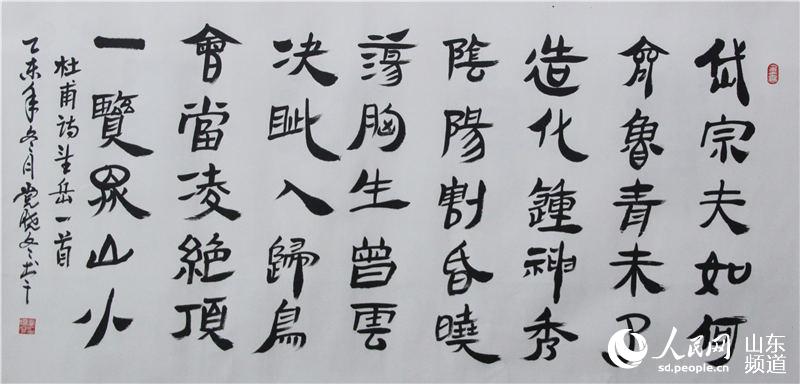 岱宗夫如何
齊魯青未了
造化鍾神秀
陰陽割昏曉
蕩胸生曾雲
决眦入歸鳥
會當凌絕頂
一覽眾山小
杜甫诗望岳一首
乙未年冬月
人民网 山东频道
sd.people.cn